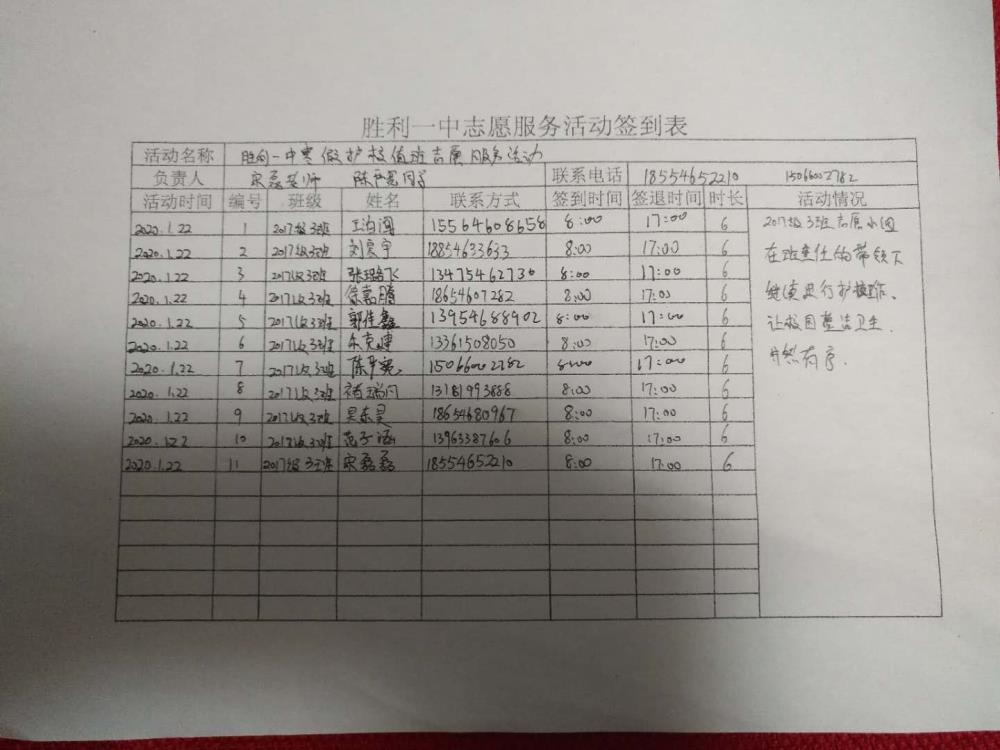 胜利一中志愿服务活动签到表
活动名称 胜利一中寒假护校值班志愿服务活动
负责人 宋磊老师 同学 联系电话 18554652210 15066002782
活动时间 编号 班级 姓名 联系方式 签到时间 签退时间 时长 活动情况
2020.1.22 1 2017级3班 15564608658 8:00 17:00 6 2017级3班志愿小团
2020.1.22 2 2017级3班 刘寰宇 18854633633 8:00 17:00 6 在班主任的带领下
2020.1.22 3 2017级3班 张璐飞 13475462730 8:00 17:00 6
2020.1.22 4 2017级3班 徐嘉腾 18654607282 8:00 17:00 6 继续进行护校工作、
2020.1.22 5 2017级3班 郭佳鑫 13954688902 8:00 17:00 6 让校园整洁卫生
2020.1.22 6 2017级3班 13361508050 8:00 17:00 6
2020.1.22 7 2017级3班 15066002782 8:00 17:00 6 井然有序.
2020.1.22 8 2017级3班 13181993888 8:00 17:00 6
2020.1.22 9 2017级3班 吴东昊 18654680967 8:00 17:00 6
2020.1.22 10 2017级3班 范子涵 13963387606 8:00 17:00 6
2020.1.22 11 2017级3班 宋磊磊 18554652210 8:00 17:00 6